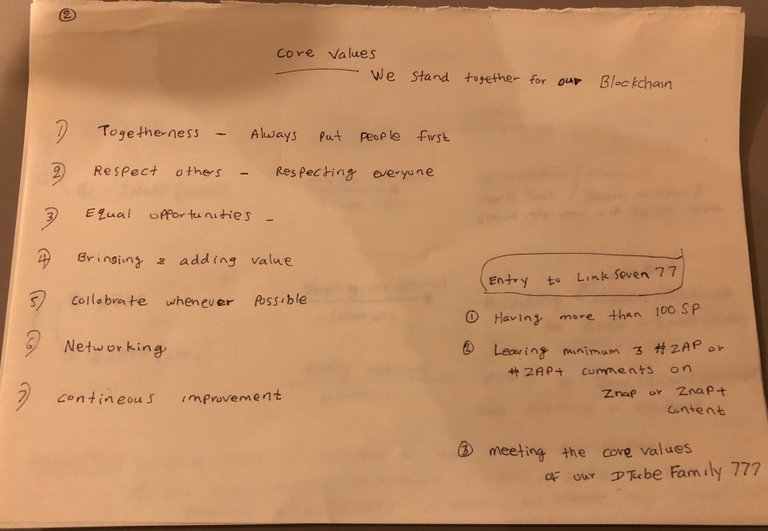 ②
Core Values
We stand together for our Blockchain
1) Togetherness - Always put people first
2) Respect others - Respecting everyone
3) Equal opportunities -
4) Bringing & adding value
5) collobrate whenever possible
6) Networking
7) contineous improvement
Entry to Link Seven 77
① Having more than 100 SP
② Leaving minimum 3 #ZAP or
#ZAP+ comments on
Znap or Znap+
content
③ meeting the core values
of our DTube Family 777